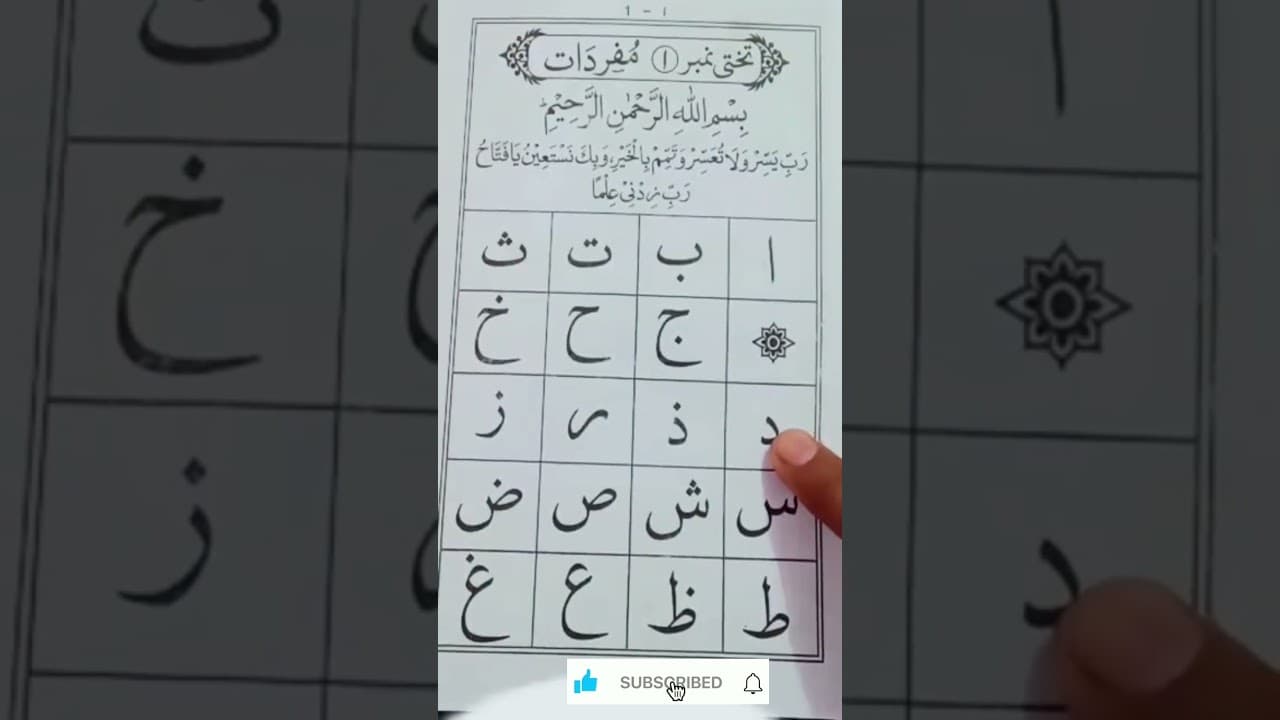 ١ - 1
تختی نمبر ١ مُفْرِدَات
بِسْمِ اللّٰهِ الرَّحْمٰنِ الرَّحِيْمِ
رَبِّ يَسِّرْ وَلَا تُعَسِّرْ وَتَمِّمْ بِالْخَيْرِ، وَبِكَ نَسْتَعِيْنُ يَا فَتَّاحُ
رَبِّ زِدْنِيْ عِلْمًا
ا ب ت ث
ج ح خ
د ذ ر ز
س ش ص ض
ط ظ ع غ
SUBSCRIBED